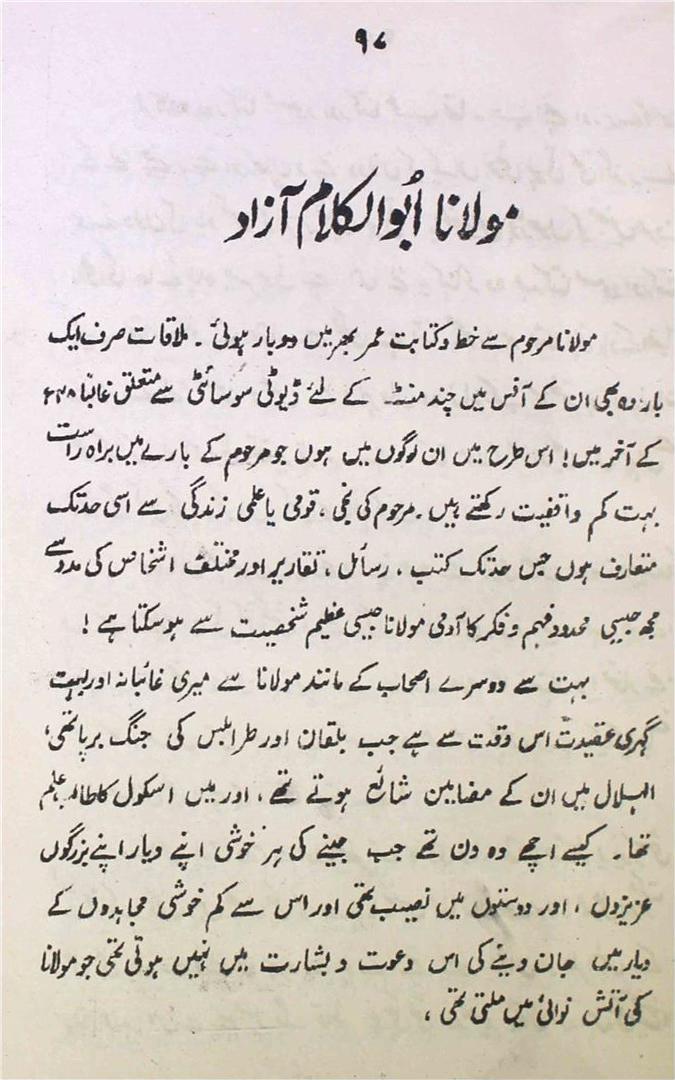 ۹۷
مولانا اُبوالکلام آزاد
مولانا مرحوم سے خط و کتابت عمر بھر میں دو بار ہوئی ۔ ملاقات صرف ایک
بار وہ بھی ان کے آفس میں چند منٹ کے لئے ڈیوٹی سوسائٹی سے متعلق غالبًا ۴۸ء
کے آخر میں! اس طرح میں ان لوگوں میں ہوں جو مرحوم کے بارے میں براہ راست
بہت کم واقفیت رکھتے ہیں۔ مرحوم کی نجی ، قومی یا علمی زندگی سے اسی حد تک
متعارف ہوں جس حد تک کتب ، رسائل ، تقاریر اور مختلف اشخاص کی مدد سے
مجھ جیسی محدود فہم و فکر کا آدمی مولانا جیسی عظیم شخصیت سے ہو سکتا ہے !
بہت سے دوسرے اصحاب کے مانند مولانا سے میری غائبانہ اور بہت
گہری عقیدت اس وقت سے ہے جب بلقان اور طرابلس کی جنگ برپا تھی،
الہلال میں ان کے مضامین شائع ہوتے تھے ، اور میں اسکول کا طالب علم
تھا۔ کیسے اچھے وہ دن تھے جب جینے کی ہر خوشی اپنے دیار اپنے بزرگوں
عزیزوں ، اور دوستوں میں نصیب تھی اور اس سے کم خوشی مجاہدوں کے
دیار میں جان دینے کی اس دعوت و بشارت میں نہیں ہوتی تھی جو مولانا
کی آتش نوائی میں ملتی تھی ،